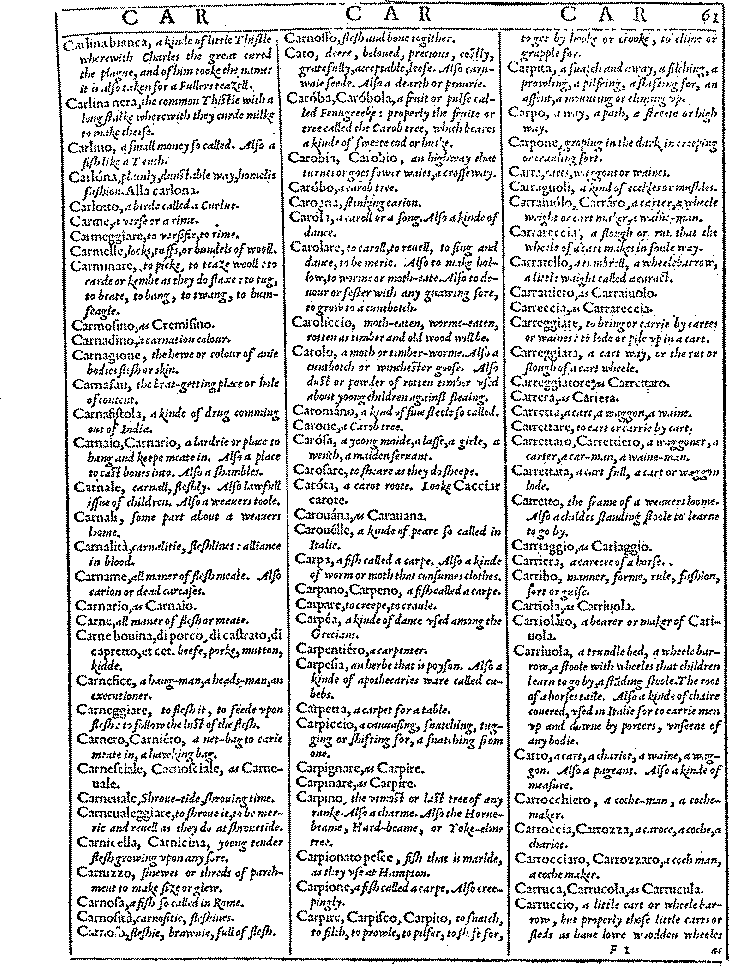 C A R
C A R
C A R
61
Carlina bianca, a kinde of little Thistle
wherewith Charles the great cured
the plague, and of him tooke the name:
it is also taken for a Fullers teazell.
Carlina nera, the common Thistle with a
long stalke wherewith they curde milke
to make cheese.
Carlino, a small money so called. Also a
fish like a Tench.
Carlóna, plainly, dunstable way, homelie
fashion. Alla carlona.
Carlotto, a birde called a Curlue.
Carme, a verse or a rime.
Carmeggiare, to versifie, to rime.
Carmelle, locks, tuffs, or bundels of wooll.
Carminare, to picke, to teaze wooll: to
carde or kembe as they do flaxe: to tug,
to beate, to bang, to twang, to bum-
feagle.
Carmosino, as Cremisino.
Carnadino, a carnation colour.
Carnagione, the hewe or colour of anie
bodies flesh or skin.
Carnafau, the brat-getting place or hole
of content.
Carnafistola, a kinde of drug comming
out of India.
Carnaio, Carnario, a lardrie or place to
hang and keepe meate in. Also a place
to cast bones into. Also a shambles.
Carnale, carnall, fleshly. Also lawfull
issue of children. Also a weavers toole.
Carnali, some part about a weavers
lome.
Carnalità, carnalitie, fleshlines: alliance
in blood.
Carname, all maner of flesh meate. Also
carion or dead carcases.
Carnario, as Carnaio.
Carne, all maner of flesh or meate.
Carne bouina, di porco, di castrato, di
capretto, et cet. beefe, porke, mutton,
kidde.
Carnefice, a hang-man, a heads-man, an
executioner.
Carneggiare, to flesh it, to feede vpon
flesh: to follow the lust of the flesh.
Carnero, Carniéro, a net-bag to carie
meate in, a hawking bag.
Carnesciale, Carnosciale, as Carne-
uale.
Carneuale, Shroue-tide, shrouing time.
Carneualeggiare, to shroue it, to be mer-
rie and reuell as they do at shrouetide.
Carnicella, Carnicina, young tender
flesh growing vpon any sore.
Carnuzzo, sinewes or threds of parch-
ment to make size or glew.
Carnosa, a fish so called in Rome.
Carnosità, carnositie, fleshines.
Carnoso, fleshie, brawnie, full of flesh.
Carnosso, flesh and bone together.
Caro, deere, beloued, precious, costly,
gratefully, acceptable, leefe. Also caru-
waie seede. Also a dearth or penurie.
Caróba, Caróbola, a fruit or pulse cal-
led Fenngreeke: properly the fruite or
tree called the Carob tree, which beares
a kinde of sweete cod or huske.
Carobin, Carobio, an highway that
turnes or goes fower waies, a crosse way.
Caróbo, a carob tree.
Carogna, stinking carion.
Carola, a caroll or a song. Also a kinde of
dance.
Carolare, to caroll, to reuell, to sing and
dance, to be merie. Also to make hol-
low, to worme or moth-eate. Also to de-
uour or fester with any gnawing sore,
to grow to a cumbotch.
Caroliccio, moth-eaten, worme-eaten,
rotten as timber and old wood will be.
Carolo, a moth or timber-worme. Also a
cumbotch or winchester goose. Also
dust or powder of rotten timber vsed
about young children against fleaing.
Caromano, a kind of fine fleece so called.
Carone, a Carob tree.
Carósa, a yoong maide, a lasse, a girle, a
wench, a maiden seruant.
Carosare, to sheare as they do sheepe.
Caróta, a carot roote. Looke Cacciar
carote.
Carouána, as Carauana.
Carouélle, a kinde of peare so called in
Italie.
Carpa, a fish called a carpe. Also a kinde
of worm or moth that consumes clothes.
Carpano, Carpeno, a fish called a carpe.
Carpare, to creepe, to craule.
Carpéa, a kinde of dance vsed among the
Grecians.
Carpentiéro, a carpenter.
Carpesia, an herbe that is poyson. Also a
kinde of apothecaries ware called cu-
bebs.
Carpetta, a carpet for a table.
Carpiccio, a canuasing, snatching, tug-
ging or shifting for, a snatching from
one.
Carpignare, as Carpire.
Carpinare, as Carpire.
Carpino, the vtmost or last tree of any
ranke. Also a charme. Also the Horne-
beame, Hard-beame, or Yoke-elme
tree.
Carpionato pesce, fish that is marlde,
as they vse at Hampton.
Carpione, a fish called a carpe. Also cree-
pingly.
Carpire, Carpisco, Carpito, to snatch,
to filch, to prowle, to pilfer, to shift for,
to get by hooke or crooke, to clime or
grapple for.
Carpita, a snatch and away, a filching, a
prowling, a pilfring, a shifting for, an
assent, a mounting or climing vp.
Carpo, a way, a path, a streete or high
way.
Carpone, groping in the dark in creeping
or crauling sort.
Carra, cartes, waggons or waines.
Carragnoli, a kind of cockles or muskles.
Carraiuólo, Carráro, a carter, a wheele
wright or cart maker, a waine-man.
Carrareccia, a slough or rut that the
wheele of a cart makes in foule way.
Carratello, a tumbrell, a wheelebarrow,
a little waight called a caract.
Carratiero, as Carraiuolo.
Carreccia, as Carrareccia.
Carreggiare, to bring or carrie by cartes
or waines: to lode or pile vp in a cart.
Carreggiata, a cart way, or the rut or
slough of a cart wheele.
Carreggiatore, as Carrettaro.
Carrera, as Cariera.
Carretta, a cart, a waggon, a waine.
Carrettare, to cart or carrie by cart.
Carrettaro, Carrettiero, a waggoner, a
carter, a car-man, a waine-man.
Carrettata, a cart full, a cart or waggon
lode.
Carretto, the frame of a weauers loome.
Also a childes standing stoole to learne
to go by.
Carriaggio, as Cariaggio.
Carriera, a careere of a horse.
Carriho, manner, forme, rule, fashion,
sort or guise.
Carriola, as Carriuola.
Carriolaro, a bearer or maker of Carri-
uola.
Carriuola, a trundle bed, a wheele bar-
row, a stoole with wheeles that children
learn to go by, a standing stoole. The root
of a horses taile. Also a kinde of chaire
couered, vsed in Italie for to carrie men
vp and downe by porters, vnseene of
any bodie.
Carro, a cart, a chariot, a waine, a wag-
gon. Also a pageant. Also a kinde of
measure.
Carrocchiero, a coche-man, a coche-
maker.
Carroccia, Carrozza, a caroce, a coche, a
chariot.
Carrocciaro, Carrozzaro, a coch man,
a coche maker.
Carruca, Carrucola, as Carrucula.
Carruccio, a little cart or wheele bar-
row, but properly those little carts or
sleds as haue lowe wodden wheeles
F 1
as